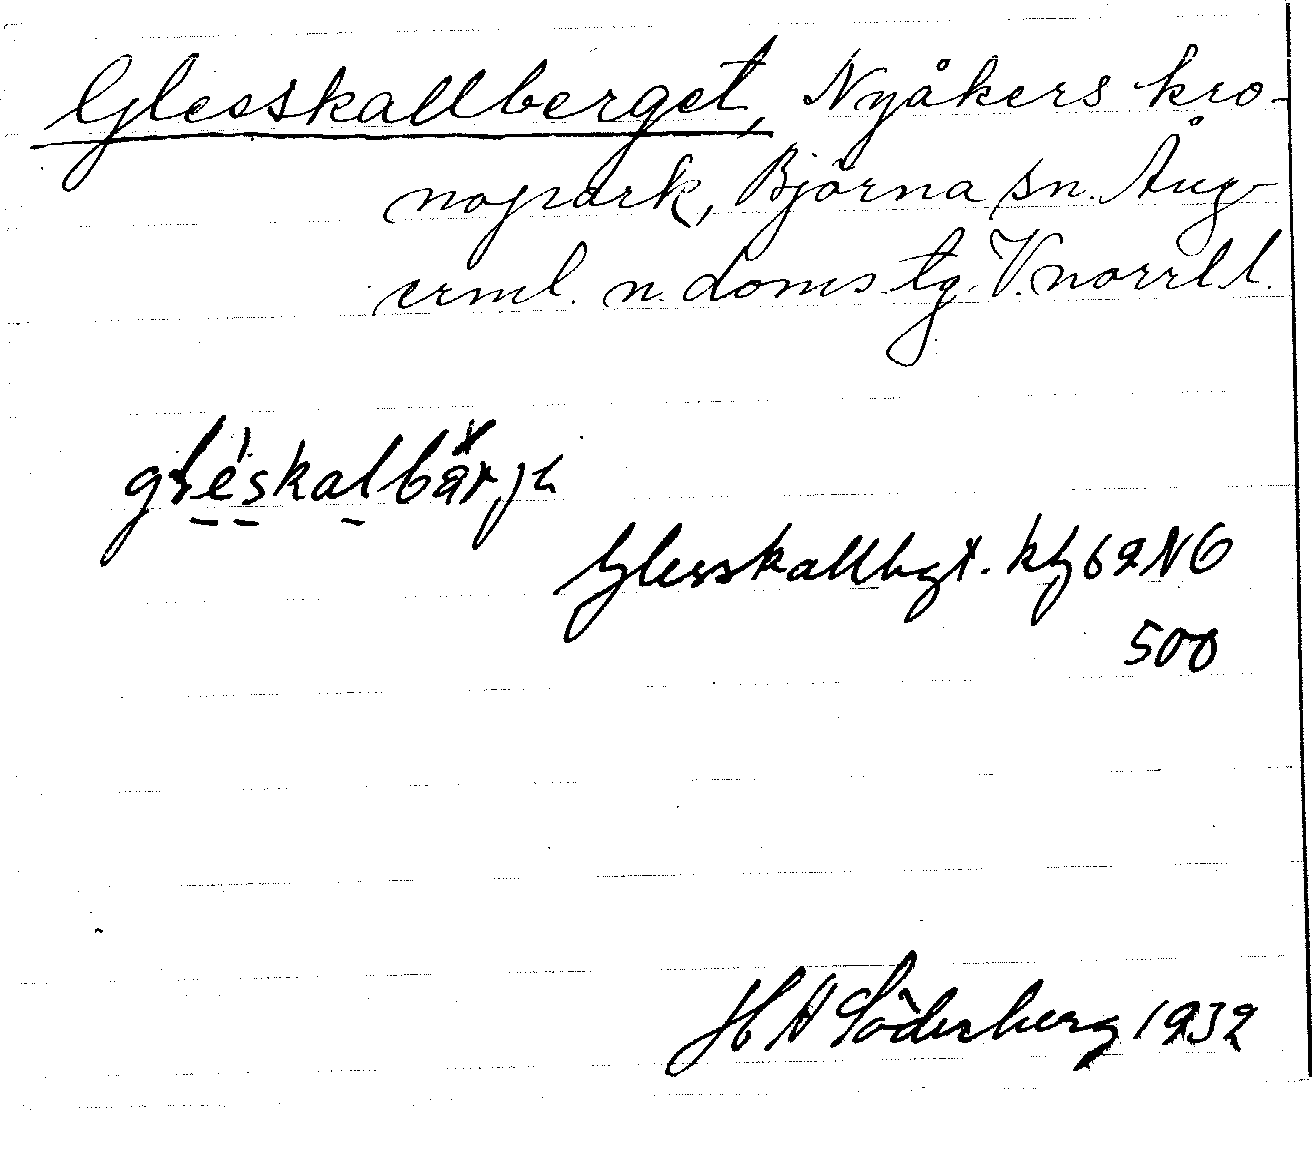 Glesskallberget, Nyåkers kro-
nopark, Björna sn. Ång-
erml. n. doms. tg. V.norrl l.
gléskalbärjh
Glesskallbgt. kbl 62 NO
500
H H Söderberg 1932